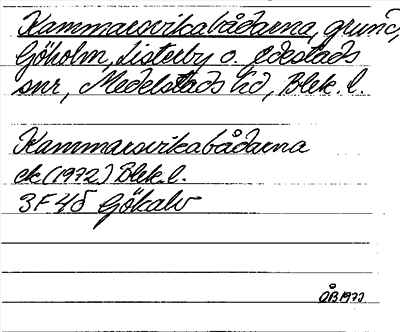 Kammarsvikabådarna, grund,
Göholm, Listerby o. Edestads
snr, Medelstads hd, Blek. l.
Kammarsvikabådarna
ek (1972) Blek. l.
3F 4d Gökalv
ÅB 1972